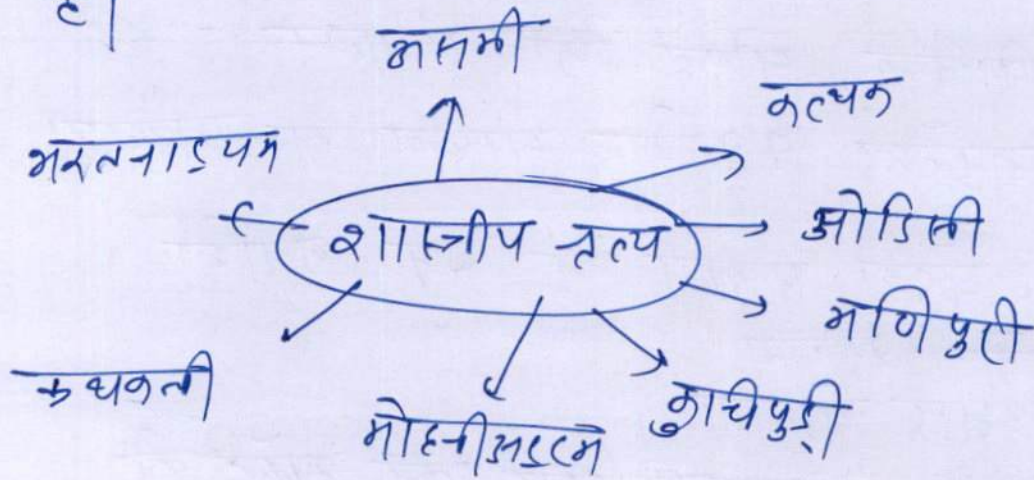 है|
असमी
कत्थक
भरतनाड्यम
शास्त्रीय नृत्य
ओडिसी
मणिपुरी
कथकली
कुचिपुड़ी
मोहनीअट्टम